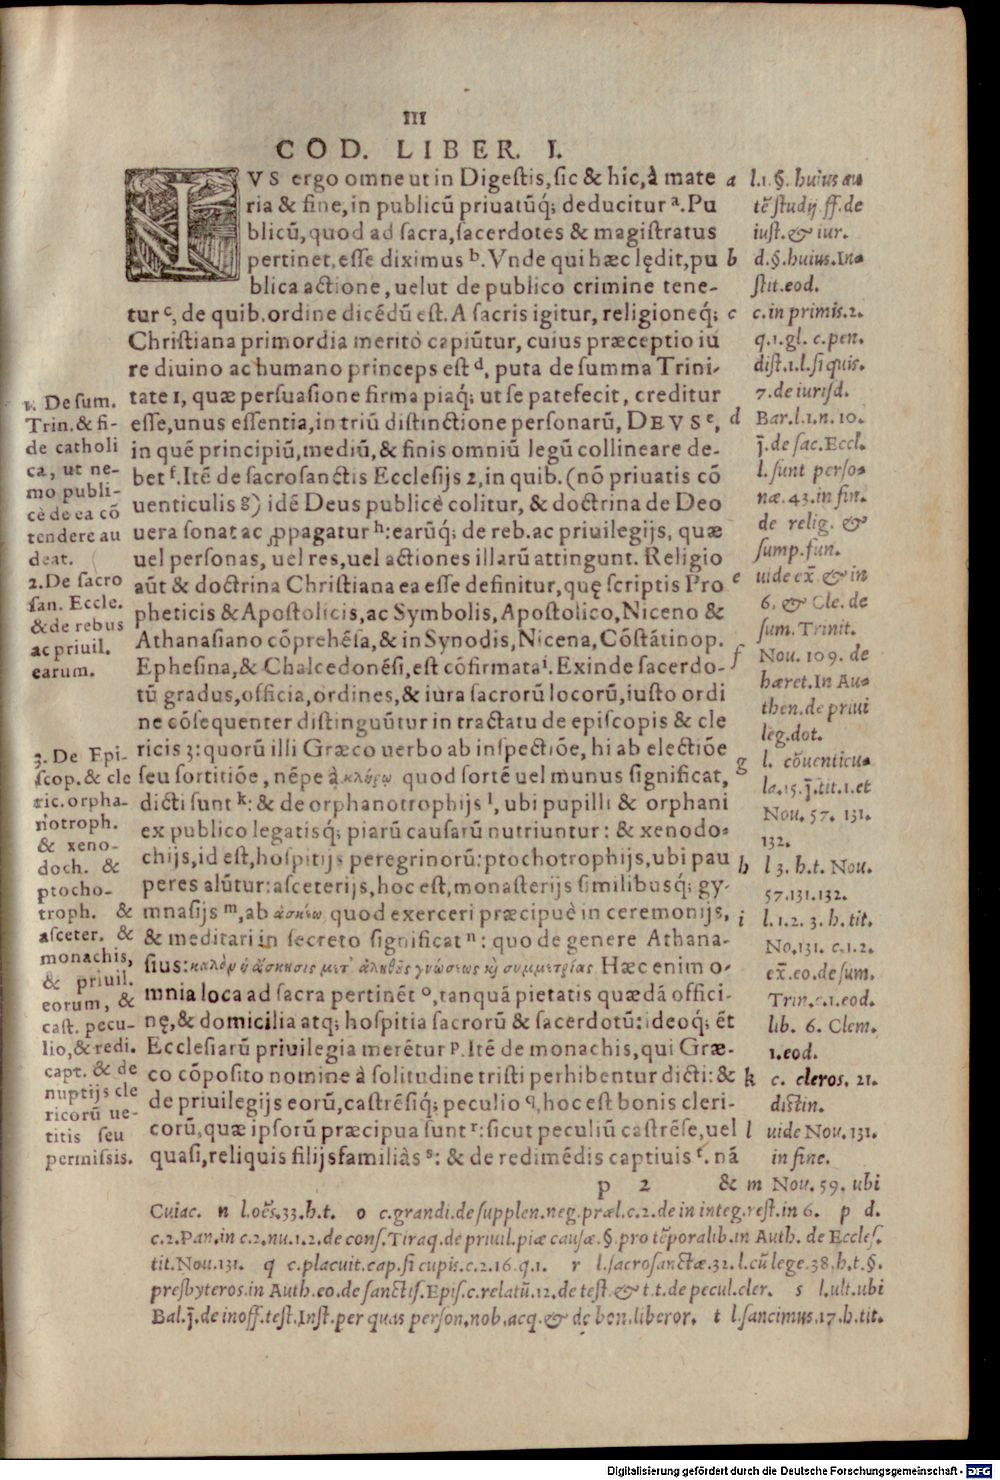 III
COD. LIBER. I.
IVS ergo omne ut in Digestis, sic & hic, à mate
ria & fine, in publicũ priuatũq́; deducitur ᵃ. Pu
blicũ, quod ad sacra, sacerdotes & magistratus
pertinet, esse diximus ᵇ. Vnde qui hæc lędit, pu
blica actione, uelut de publico crimine tene-
tur ᶜ, de quib. ordine dicẽdũ est. A sacris igitur, religioneq́;
Christiana primordia meritò capiũtur, cuius præceptio iu
re diuino ac humano princeps est ᵈ, puta de summa Trini-
tate 1, quæ persuasione firma piaq́; ut se patefecit, creditur
esse, unus essentia, in triũ distinctione personarũ, DEVS ᵉ,
in quẽ principiũ, mediũ, & finis omniũ legũ collineare de-
bet ᶠ. Itẽ de sacrosanctis Ecclesijs 2, in quib. (nõ priuatis cõ
uenticulis ᵍ) idẽ Deus publicè colitur, & doctrina de Deo
uera sonat ac ꝓpagatur ʰ: earũq́; de reb. ac priuilegijs, quæ
uel personas, uel res, uel actiones illarũ attingunt. Religio
aũt & doctrina Christiana ea esse definitur, quę scriptis Pro
pheticis & Apostolicis, ac Symbolis, Apostolico, Niceno &
Athanasiano cõprehẽsa, & in Synodis, Nicena, Cõstãtinop.
Ephesina, & Chalcedonẽsi, est cõfirmata ⁱ. Exinde sacerdo-
tũ gradus, officia, ordines, & iura sacrorũ locorũ, iusto ordi
ne cõsequenter distinguũtur in tractatu de episcopis & cle
ricis 3: quorũ illi Græco uerbo ab inspectiõe, hi ab electiõe
seu sortitiõe, nẽpe à κλήρῳ quod sortẽ uel munus significat,
dicti sunt ᵏ: & de orphanotrophijs ˡ, ubi pupilli & orphani
ex publico legatisq́; piarũ causarũ nutriuntur: & xenodo-
chijs, id est, hospitijs peregrinorũ: ptochotrophijs, ubi pau
peres alũtur: asceterijs, hoc est, monasterijs similibusq́; gy-
mnasijs ᵐ, ab ἀσκέω quod exerceri præcipuè in ceremonijs,
& meditari in secreto significat ⁿ: quo de genere Athana-
sius: καλὸν ἡ ἄσκησις μετ' ἀληθοῦς γνώσεως καὶ συμμετρίας Hæc enim o-
mnia loca ad sacra pertinẽt ᵒ, tanquã pietatis quædã offici-
nę, & domicilia atq́; hospitia sacrorũ & sacerdotũ: ideoq́; ẽt
Ecclesiarũ priuilegia merẽtur ᵖ. Itẽ de monachis, qui Græ-
co cõposito nomine à solitudine tristi perhibentur dicti: &
de priuilegijs eorũ, castrẽsiq́; peculio q, hoc est bonis cleri-
corũ, quæ ipsorũ præcipua sunt ʳ: sicut peculiũ castrẽse, uel
quasi, reliquis filijsfamiliàs ˢ: & de redimẽdis captiuis ᵗ. nã
p 2 &
1. De sum.
Trin. & fi-
de catholi
ca, ut ne-
mo publi-
cè de ea cõ
tendere au
deat.
2. De sacro
san. Eccle.
& de rebus
ac priuil.
earum.
3. De Epi-
scop. & cle
ric. orpha-
notroph.
& xeno-
doch. &
ptocho-
troph. &
asceter. &
monachis,
& priuil.
eorum, &
cast. pecu-
lio, & redi.
capt. & de
nuptijs cle
ricorũ ue-
titis seu
permissis.
a l.1.§. huius au
tẽ studij. ff. de
iust. & iur.
b d.§. huius. In-
stit. eod.
c c. in primis. 2.
q.1. gl. c. pen.
dist. 1. l. si quis.
7. de iurisd.
d Bar. l.1. n. 10.
j̃. de sac. Eccl.
l. sunt perso-
næ. 43. in fin.
de relig. &
sump. fun.
e uide ex̃. & in
6. & Cle. de
sum. Trinit.
f Nou. 109. de
hæret. In Au-
then. de priui
leg. dot.
g l. cõuenticu-
la. 15. j̃. tit. 1. et
Nou. 57. 131.
132.
h l 3. h. t. Nou.
57. 131. 132.
i l. 1. 2. 3. h. tit.
No. 131. c. 1. 2.
ex̃. eo. de sum.
Trin. c. 1. eod.
lib. 6. Clem.
1. eod.
k c. cleros. 21.
distin.
l uide Nou. 131.
in fine.
m Nou. 59. ubi
Cuiac. n l. oẽs. 33. h. t. o c. grandi. de supplen. neg. præl. c. 2. de in integ. rest. in 6. p d.
c. 2. Pan. in c. 2. nu. 1. 2. de cons. Tiraq. de priuil. piæ causæ. §. pro tẽporalib. in Auth. de Eccles.
tit. Nou. 131. q c. placuit. cap. si cupis. c. 2. 16. q. 1. r l. sacrosanctæ. 32. l. cũ lege. 38. h. t. §.
presbyteros. in Auth. eo. de sanctis. Epis. c. relatũ. 12. de test. & t. t. de pecul. cler. s l. ult. ubi
Bal. j̃. de inoff. test. Inst. per quas person. nob. acq. & de bon. liberor. t l. sancimus. 17. h. tit.
Digitalisierung gefördert durch die Deutsche Forschungsgemeinschaft - DFG